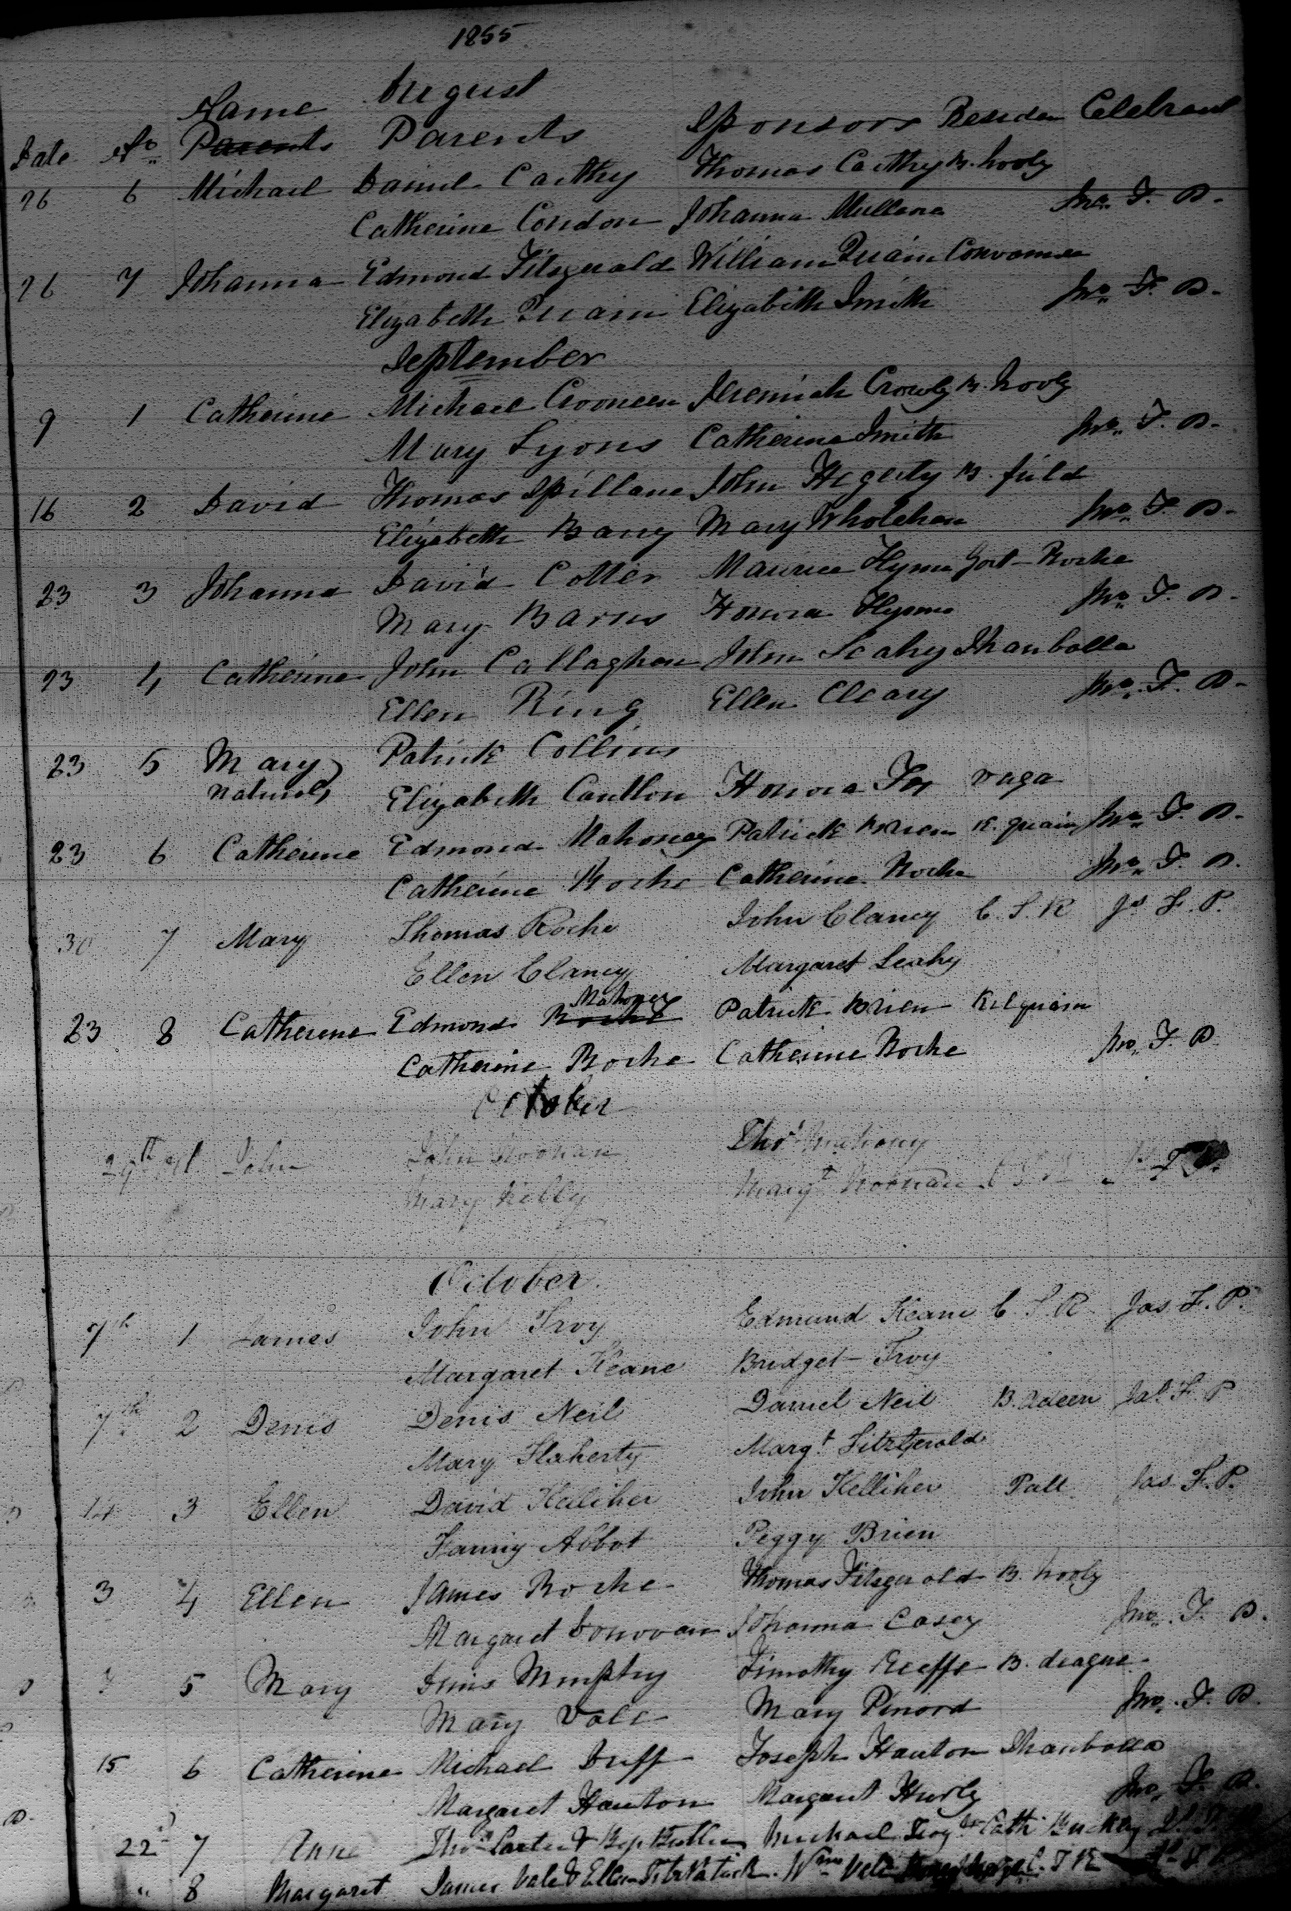 1855
August
Name
Date No Parents Parents Sponsors Residen Celebrant
26 6 Michael Daniel Carthy Thomas Carthy B. hooly
Catherine Condon Johanna Mullane Jno. F. D.
26 7 Johanna Edmond Fitzgerald William Quain Convamea
Elizabeth Quain Elizabeth Smith Jno. F. D.
September
9 1 Catherine Michael Crooneen Jeremiah Crowly B. hooly
Mary Lyons Catherine Smith Jno. F. D.
16 2 David Thomas Spillane John Hegerty B. field
Elizabeth Barry Mary Wholehan Jno. F. D.
23 3 Johanna David Cotter Maurice Flynn Gort-Roche
Mary Barns Honora Flynn Jno. F. D.
23 4 Catherine John Callaghan John Leahy Shanballa
Ellen Ring Ellen Cleary Jno. F. D.
23 5 Mary Patrick Collins
natural Elizabeth Canthon Honora Fox vaga
23 6 Catherine Edmond Mahoney Patrick Brien K. quain Jno. F. D.
Catherine Roche Catherine Roche Jno. F. D.
30 7 Mary Thomas Roche John Clancy C. T. R Jas F. P.
Ellen Clancy Margaret Leahy
Mahoney
23 8 Catherine Edmond Roche Patrick Brien Kilquain
Catherine Roche Catherine Roche Jno. F. D
October
29th John John Noonan Thos Mahony
Mary Kelly Margt Noonan
October
7th 1 James John Troy Edmund Keane C. T. R Jas. F. P.
Margaret Keane Bridget Troy
7th 2 Denis Denis Neil Daniel Neil B. adeen Jas. F. P
Mary Flaherty Margt Fitzgerald
14 3 Ellen David Kelliher John Kelliher Pall Jas F. P.
Fanny Abbot Peggy Brien
3 4 Ellen James Roche Thomas Fitzgerald B. hooly
Margaret Donovan Johanna Casey Jno. F. D.
7 5 Mary Denis Murphy Timothy Keeffe B. deague
Mary Vale Mary Pinord Jno. F. D.
15 6 Catherine Michael Duff Joseph Hanton Shanballa
Margaret Hanton Margaret Hurly Jno. F. D.
22d 7 Anne Thos Michael Troy & Cath Buckley
" 8 Margaret James Vale & Ellen Fitzpatrick. Wm Vale C. T. R